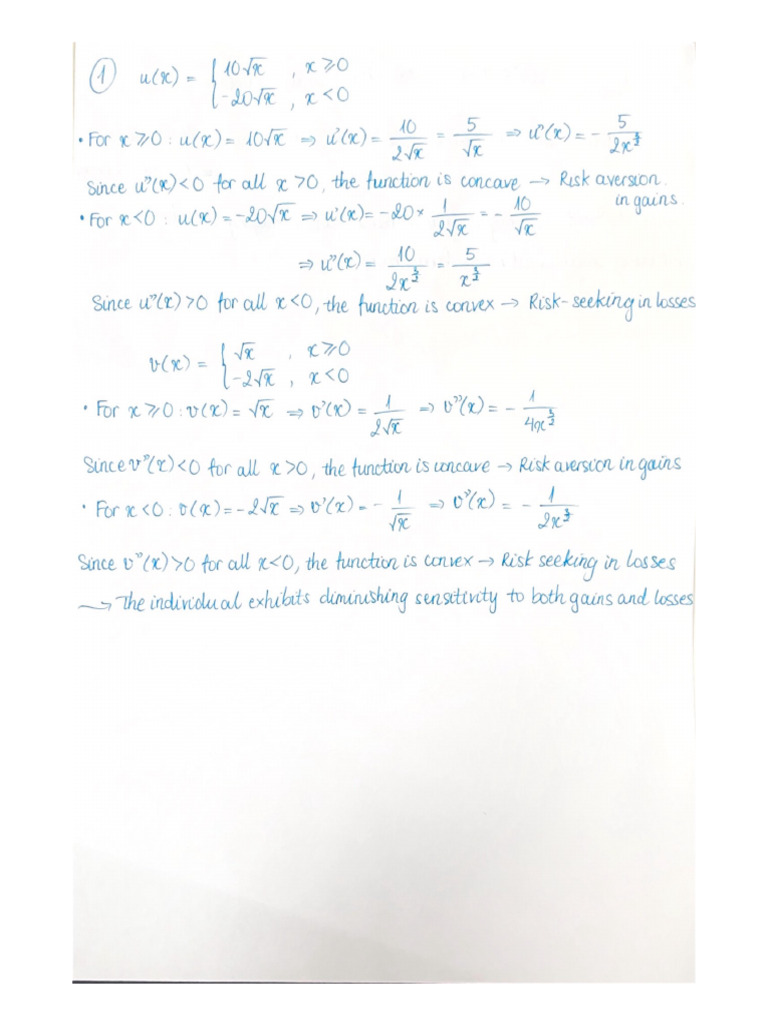 ① u(x) = { 10√x , x ≥ 0
{ -20√x , x < 0
• For x ≥ 0 : u(x) = 10√x ⇒ u'(x) = 10/(2√x) = 5/√x ⇒ u''(x) = - 5/(2x^(3/2))
Since u''(x) < 0 for all x > 0, the function is concave → Risk aversion in gains.
• For x < 0 : u(x) = -20√x ⇒ u'(x) = -20 × 1/(2√x) = - 10/√x
⇒ u''(x) = 10/(2x^(3/2)) = 5/x^(3/2)
Since u''(x) > 0 for all x < 0, the function is convex → Risk-seeking in losses
v(x) = { √x , x ≥ 0
{ -2√x , x < 0
• For x ≥ 0 : v(x) = √x ⇒ v'(x) = 1/(2√x) ⇒ v''(x) = - 1/(4x^(3/2))
Since v''(x) < 0 for all x > 0, the function is concave → Risk aversion in gains
• For x < 0 : v(x) = -2√x ⇒ v'(x) = - 1/√x ⇒ v''(x) = - 1/(2x^(3/2))
Since v''(x) > 0 for all x < 0, the function is convex → Risk seeking in losses
→ The individual exhibits diminishing sensitivity to both gains and losses